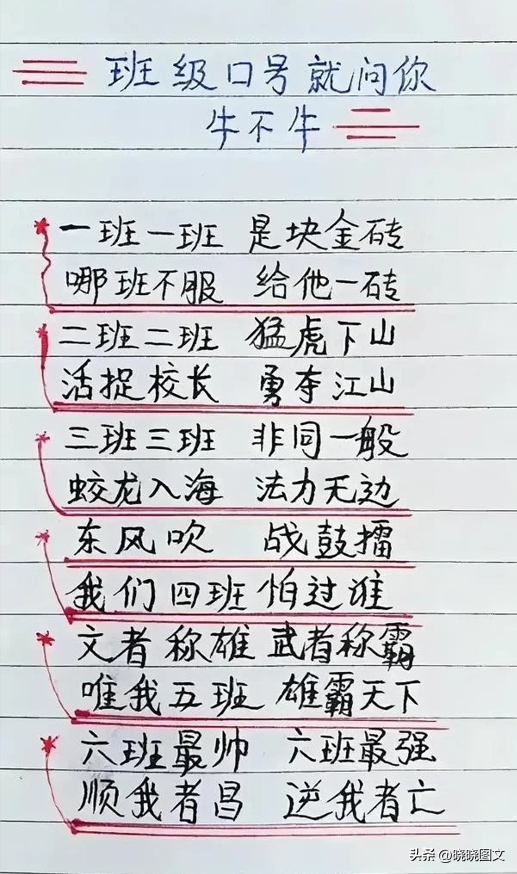 班级口号就问你
牛不牛
一班一班 是块金砖
哪班不服 给他一砖
二班二班 猛虎下山
活捉校长 勇夺江山
三班三班 非同一般
蛟龙入海 法力无边
东风吹 战鼓擂
我们四班怕过谁
文者称雄 武者称霸
唯我五班 雄霸天下
六班最帅 六班最强
顺我者昌 逆我者亡
头条 @晓晓图文